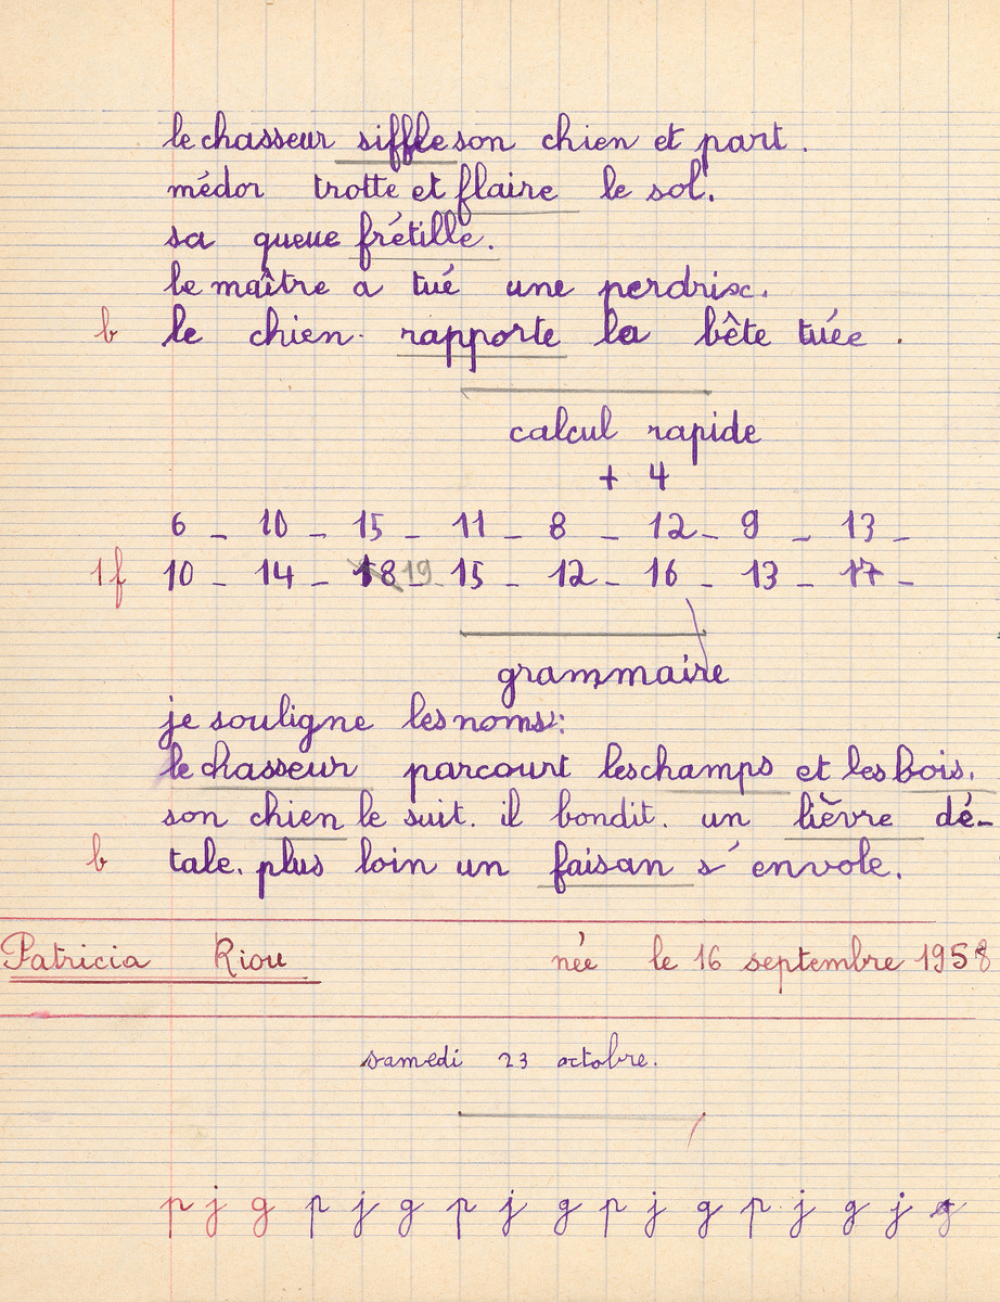 le chasseur siffle son chien et part.
médor trotte et flaire le sol.
sa queue frétille.
le maître a tué une perdrix.
b le chien rapporte la bête tuée.
calcul rapide
+ 4
6 - 10 - 15 - 11 - 8 - 12 - 9 - 13 -
1f 10 - 14 - 18 19 - 15 - 12 - 16 - 13 - 17 -
grammaire
je souligne les noms:
le chasseur parcourt les champs et les bois.
son chien le suit. il bondit. un lièvre dé-
b tale. plus loin un faisan s'envole.
Patricia Riou née le 16 septembre 1958
samedi 23 octobre.
p j g p j g p j g p j g p j g j g